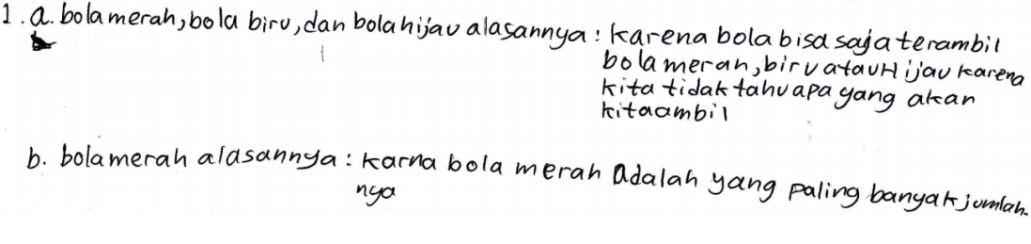 1. a. bola merah, bola biru, dan bola hijau alasannya : karena bola bisa saja terambil
bola merah, biru atau Hijau karena
kita tidak tahu apa yang akan
kita ambil
b. bola merah alasannya : karna bola merah adalah yang paling banyak jumlah.
nya